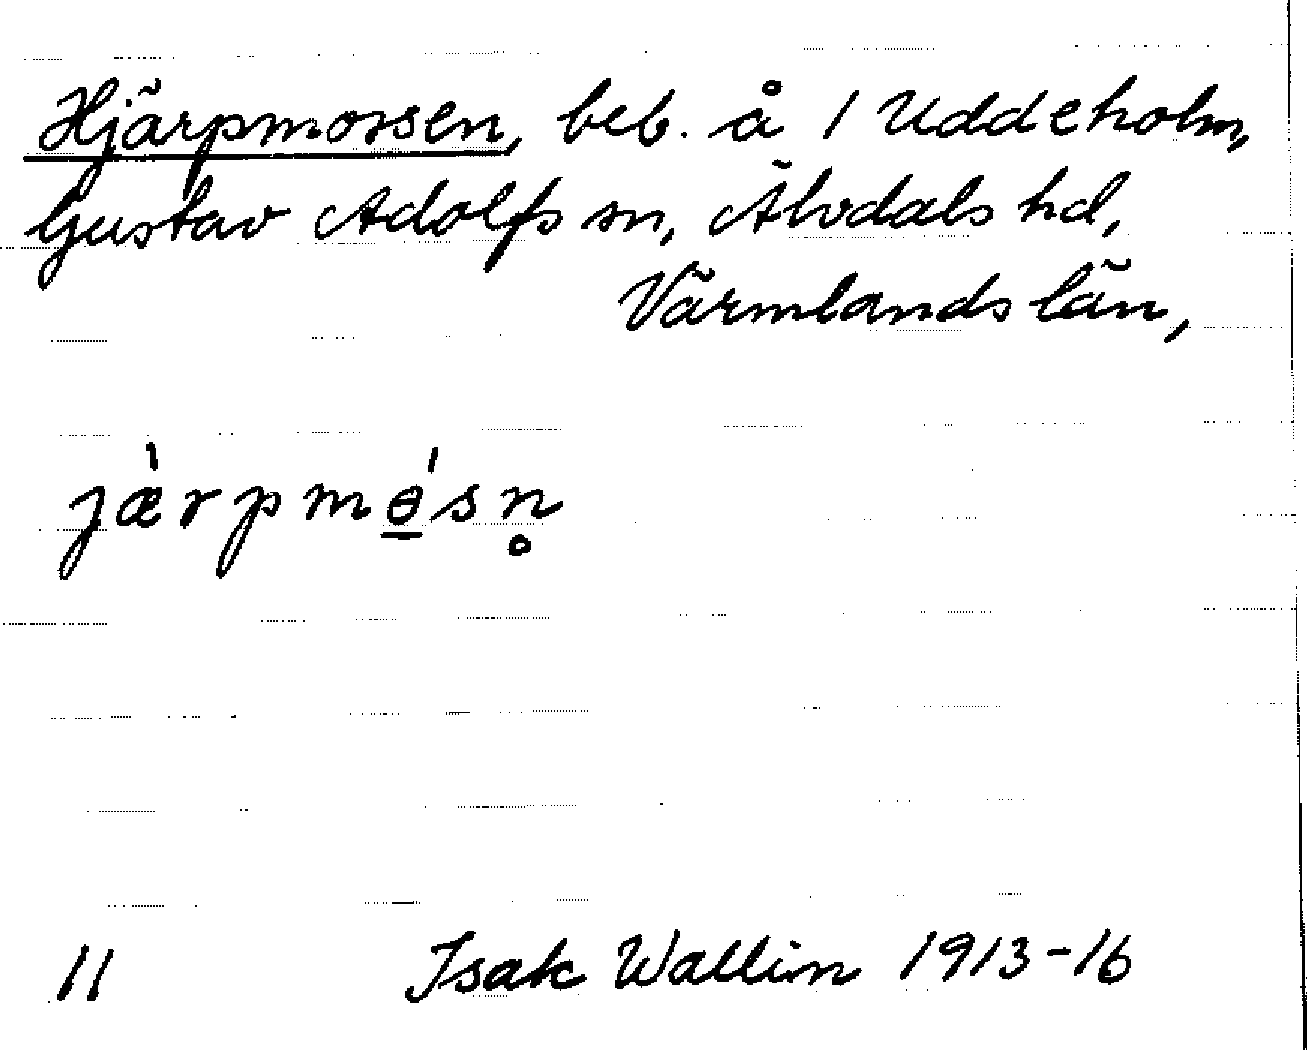 Hjärpmossen, beb. å 1 Uddeholm,
Gustav Adolfs sn, Älvdals hd,
Värmlands län,
jæ̀rpmɵ̠́sn̥
11 Isak Wallin 1913-16